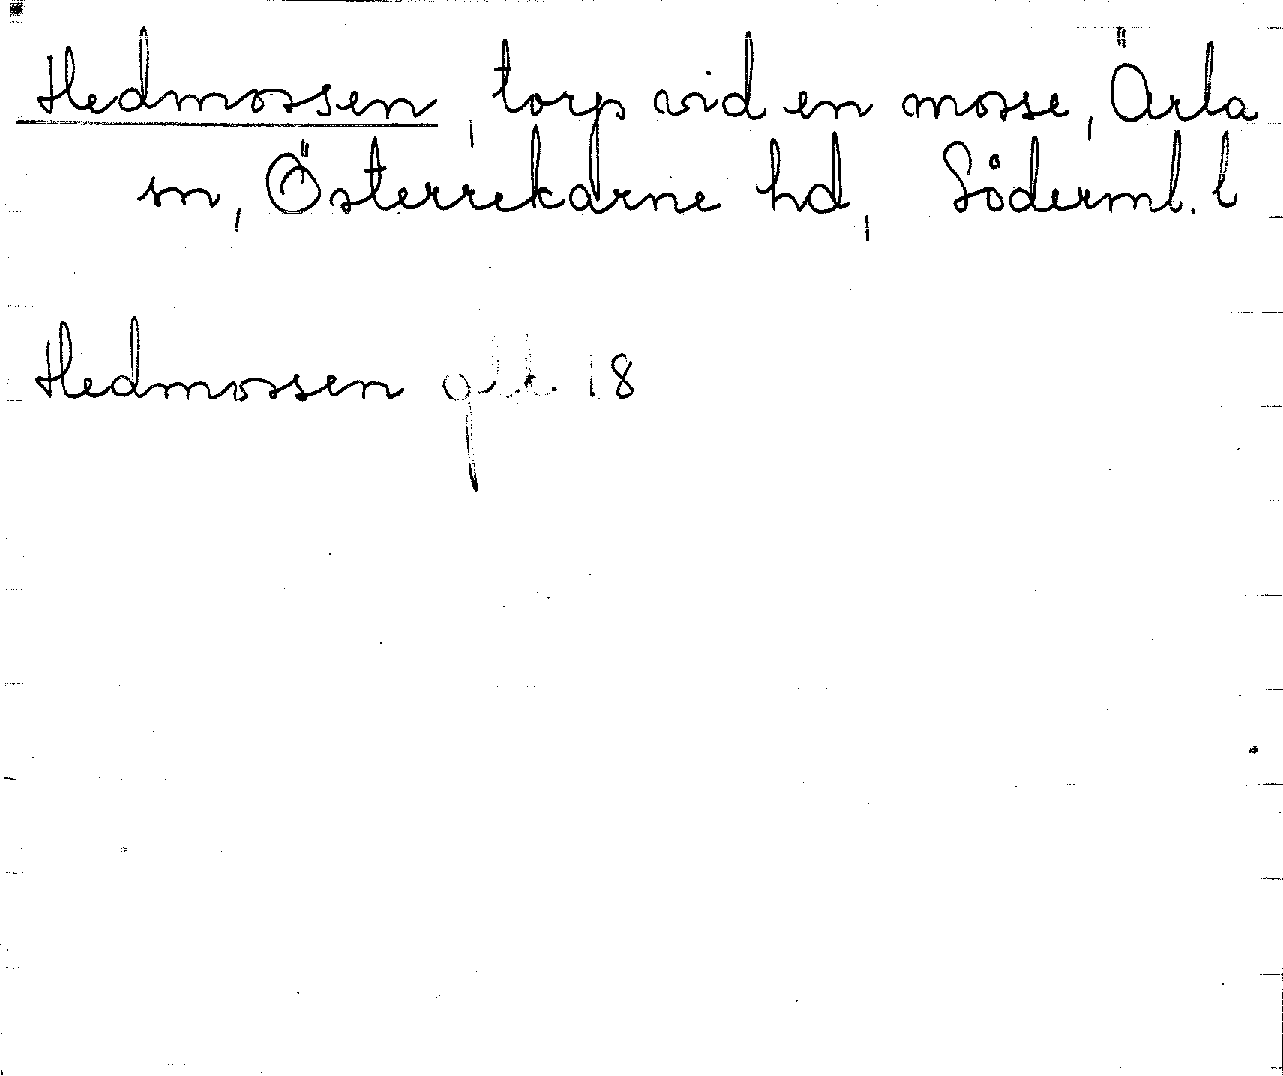 Hedmossen, torp vid en mosse, Ärla
sn, Österrekarne hd, Söderml. l
Hedmossen gK 18